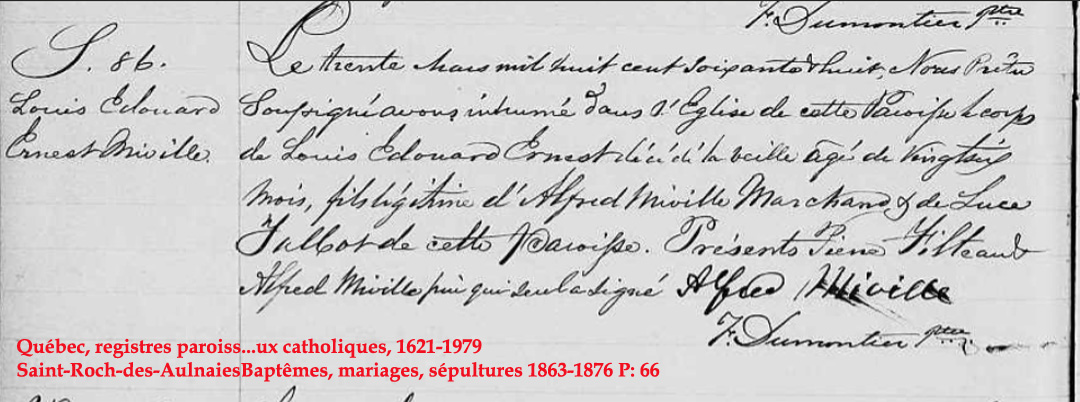 F. Dumontier Ptre
S. 86.
Louis Edouard
Ernest Miville.
Le trente Mars mil huit cent soixante & huit, Nous Prêtre
Soussigné avons inhumé dans l'Eglise de cette Paroisse le corps
de Louis Edouard Ernest décédé la veille agé de vingt six
mois, fils légitime d'Alfred Miville Marchand & de Luce
Talbot de cette Paroisse. Présents Pierre Filteau &
Alfred Miville qui seul a signé Alfred Miville
F. Dumontier Ptre
Québec, registres paroiss...ux catholiques, 1621-1979
Saint-Roch-des-AulnaiesBaptêmes, mariages, sépultures 1863-1876 P: 66